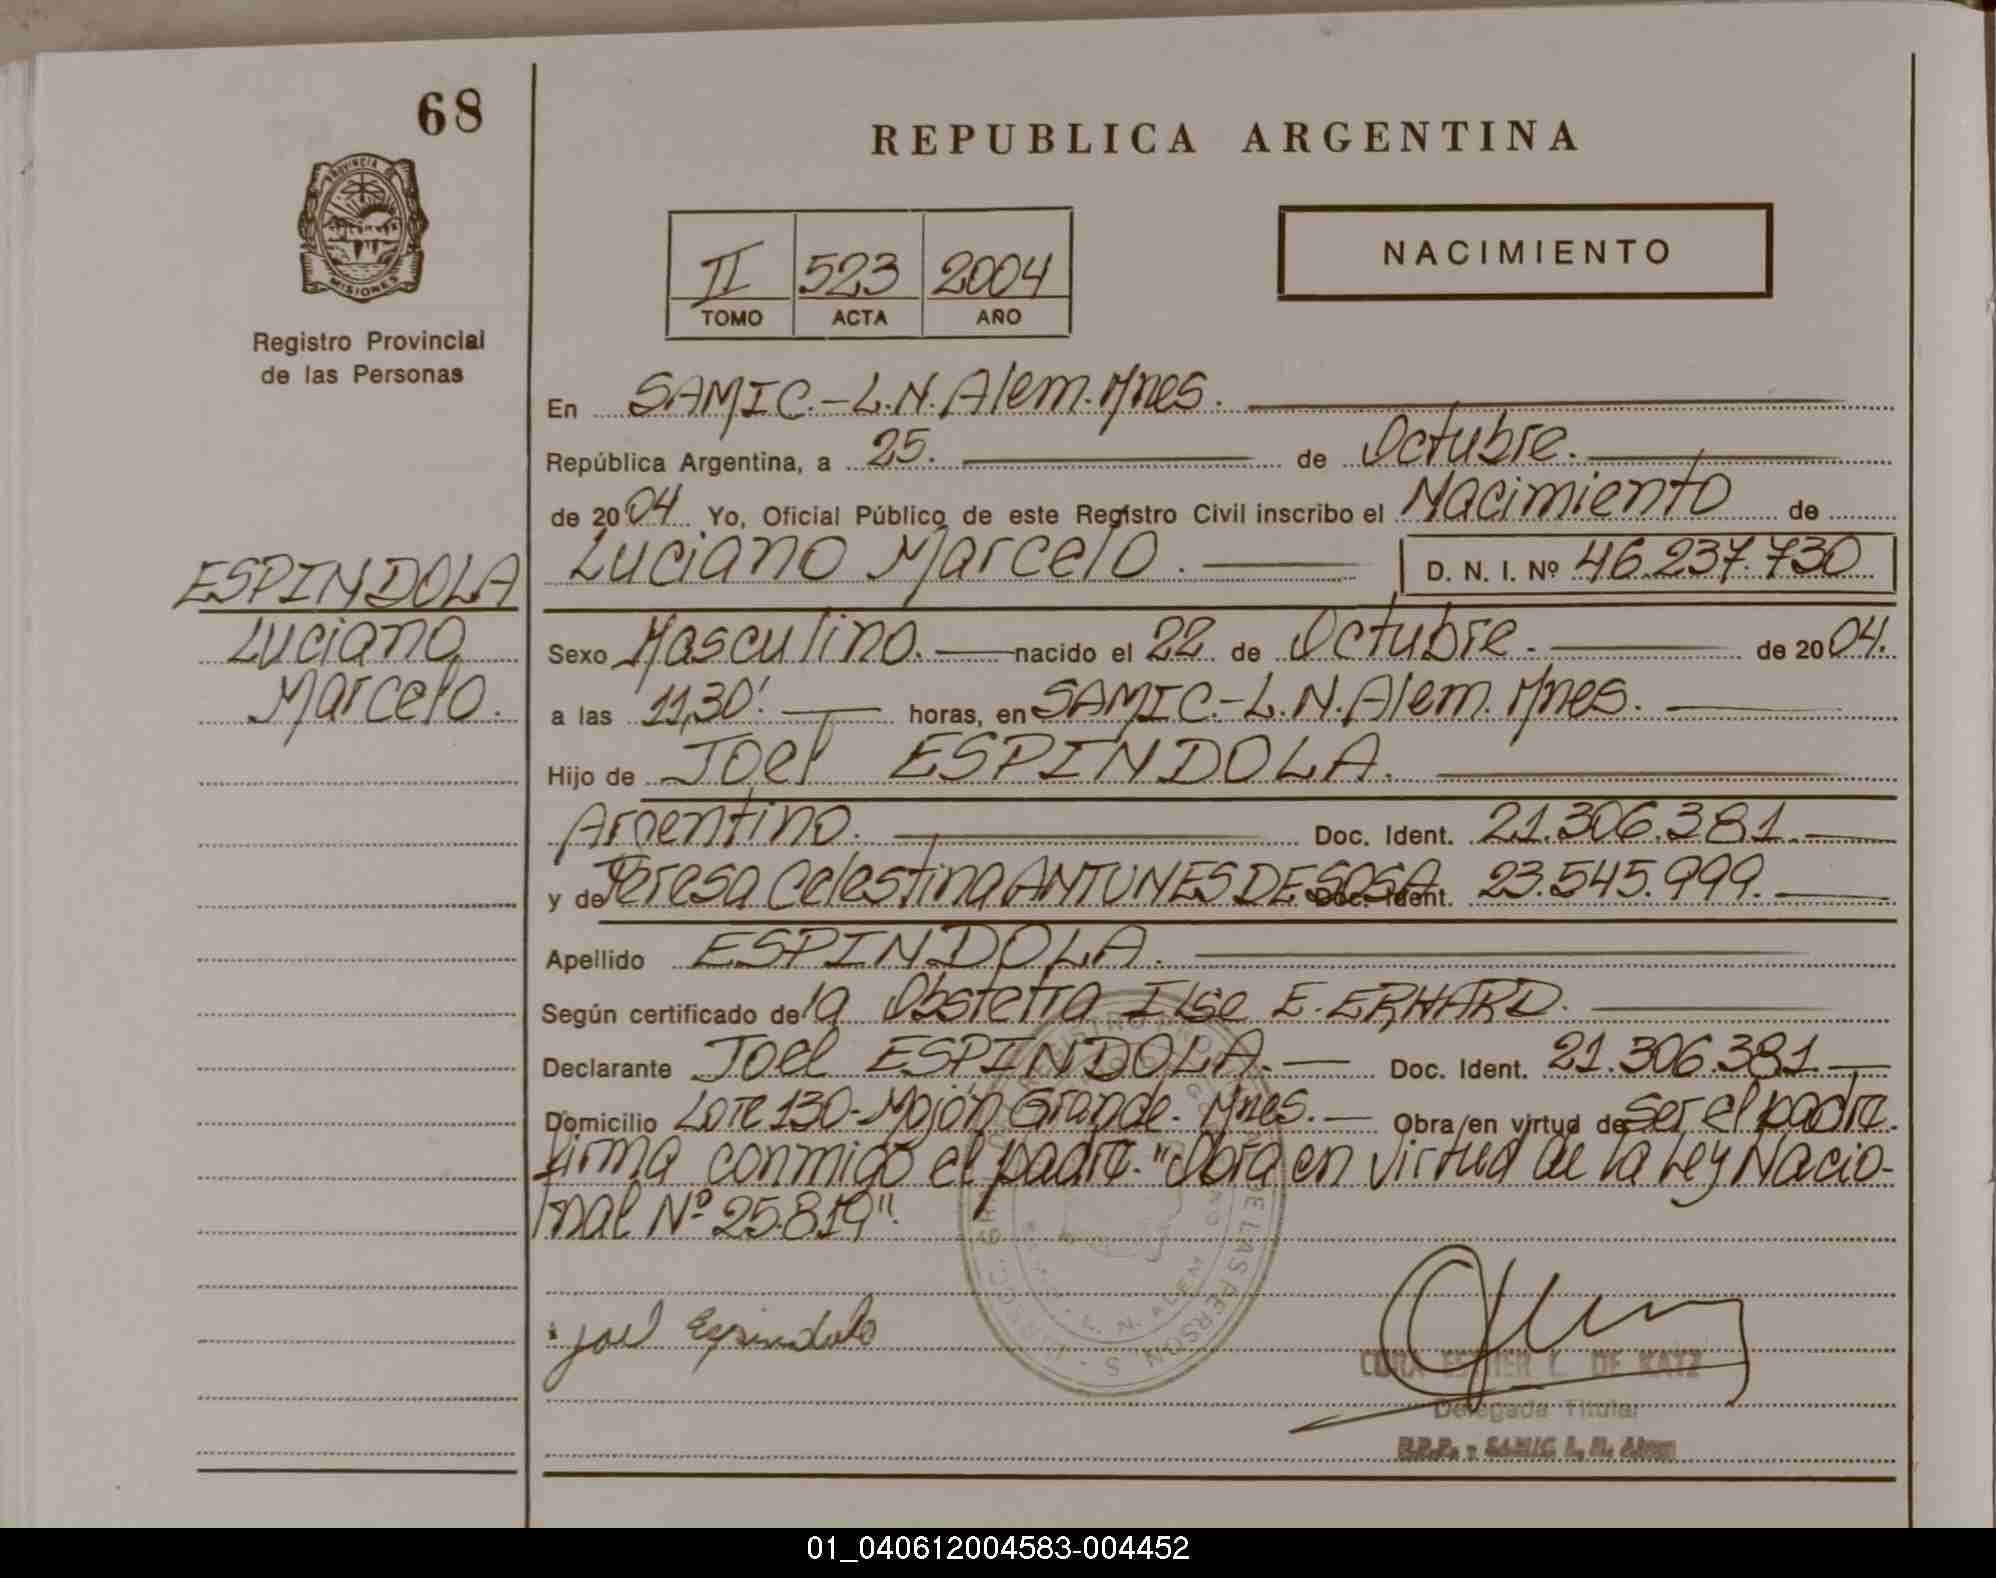 68
REPUBLICA ARGENTINA
PROVINCIA DE
MISIONES
Registro Provincial
de las Personas
NACIMIENTO
II 523 2004
TOMO ACTA AÑO
En SAMIC.-L.N.Alem.Mnes.
República Argentina, a 25. de Octubre.
de 2004 Yo, Oficial Público de este Registro Civil inscribo el Nacimiento de
Luciano Marcelo. D. N. I. Nº 46.237.730
ESPINDOLA
Luciano
Marcelo.
Sexo Masculino. nacido el 22 de Octubre. de 2004.
a las 11,30'. horas, en SAMIC.-L.N.Alem.Mnes.
Hijo de Joel ESPINDOLA.
Argentino. Doc. Ident. 21.306.381.
y de Teresa Celestina ANTUNES DE SOSA Doc. Ident. 23.545.999.
Apellido ESPINDOLA.
Según certificado de la Obstetra Ilse E. ERHARD.
Declarante Joel ESPINDOLA. Doc. Ident. 21.306.381.
Domicilio Lote 130-Mojón Grande. Mnes. Obra/en virtud de ser el padre.
Firma conmigo el padre. "Obra en virtud de la Ley Nacio-
nal Nº 25.819".
Joel Espindola
DE LAS PERSONAS
L. N. ALEM
CORA ESTHER L. DE KATZ
Delegada Titular
R.P.P. - SAMIC L. N. Alem
01_040612004583-004452